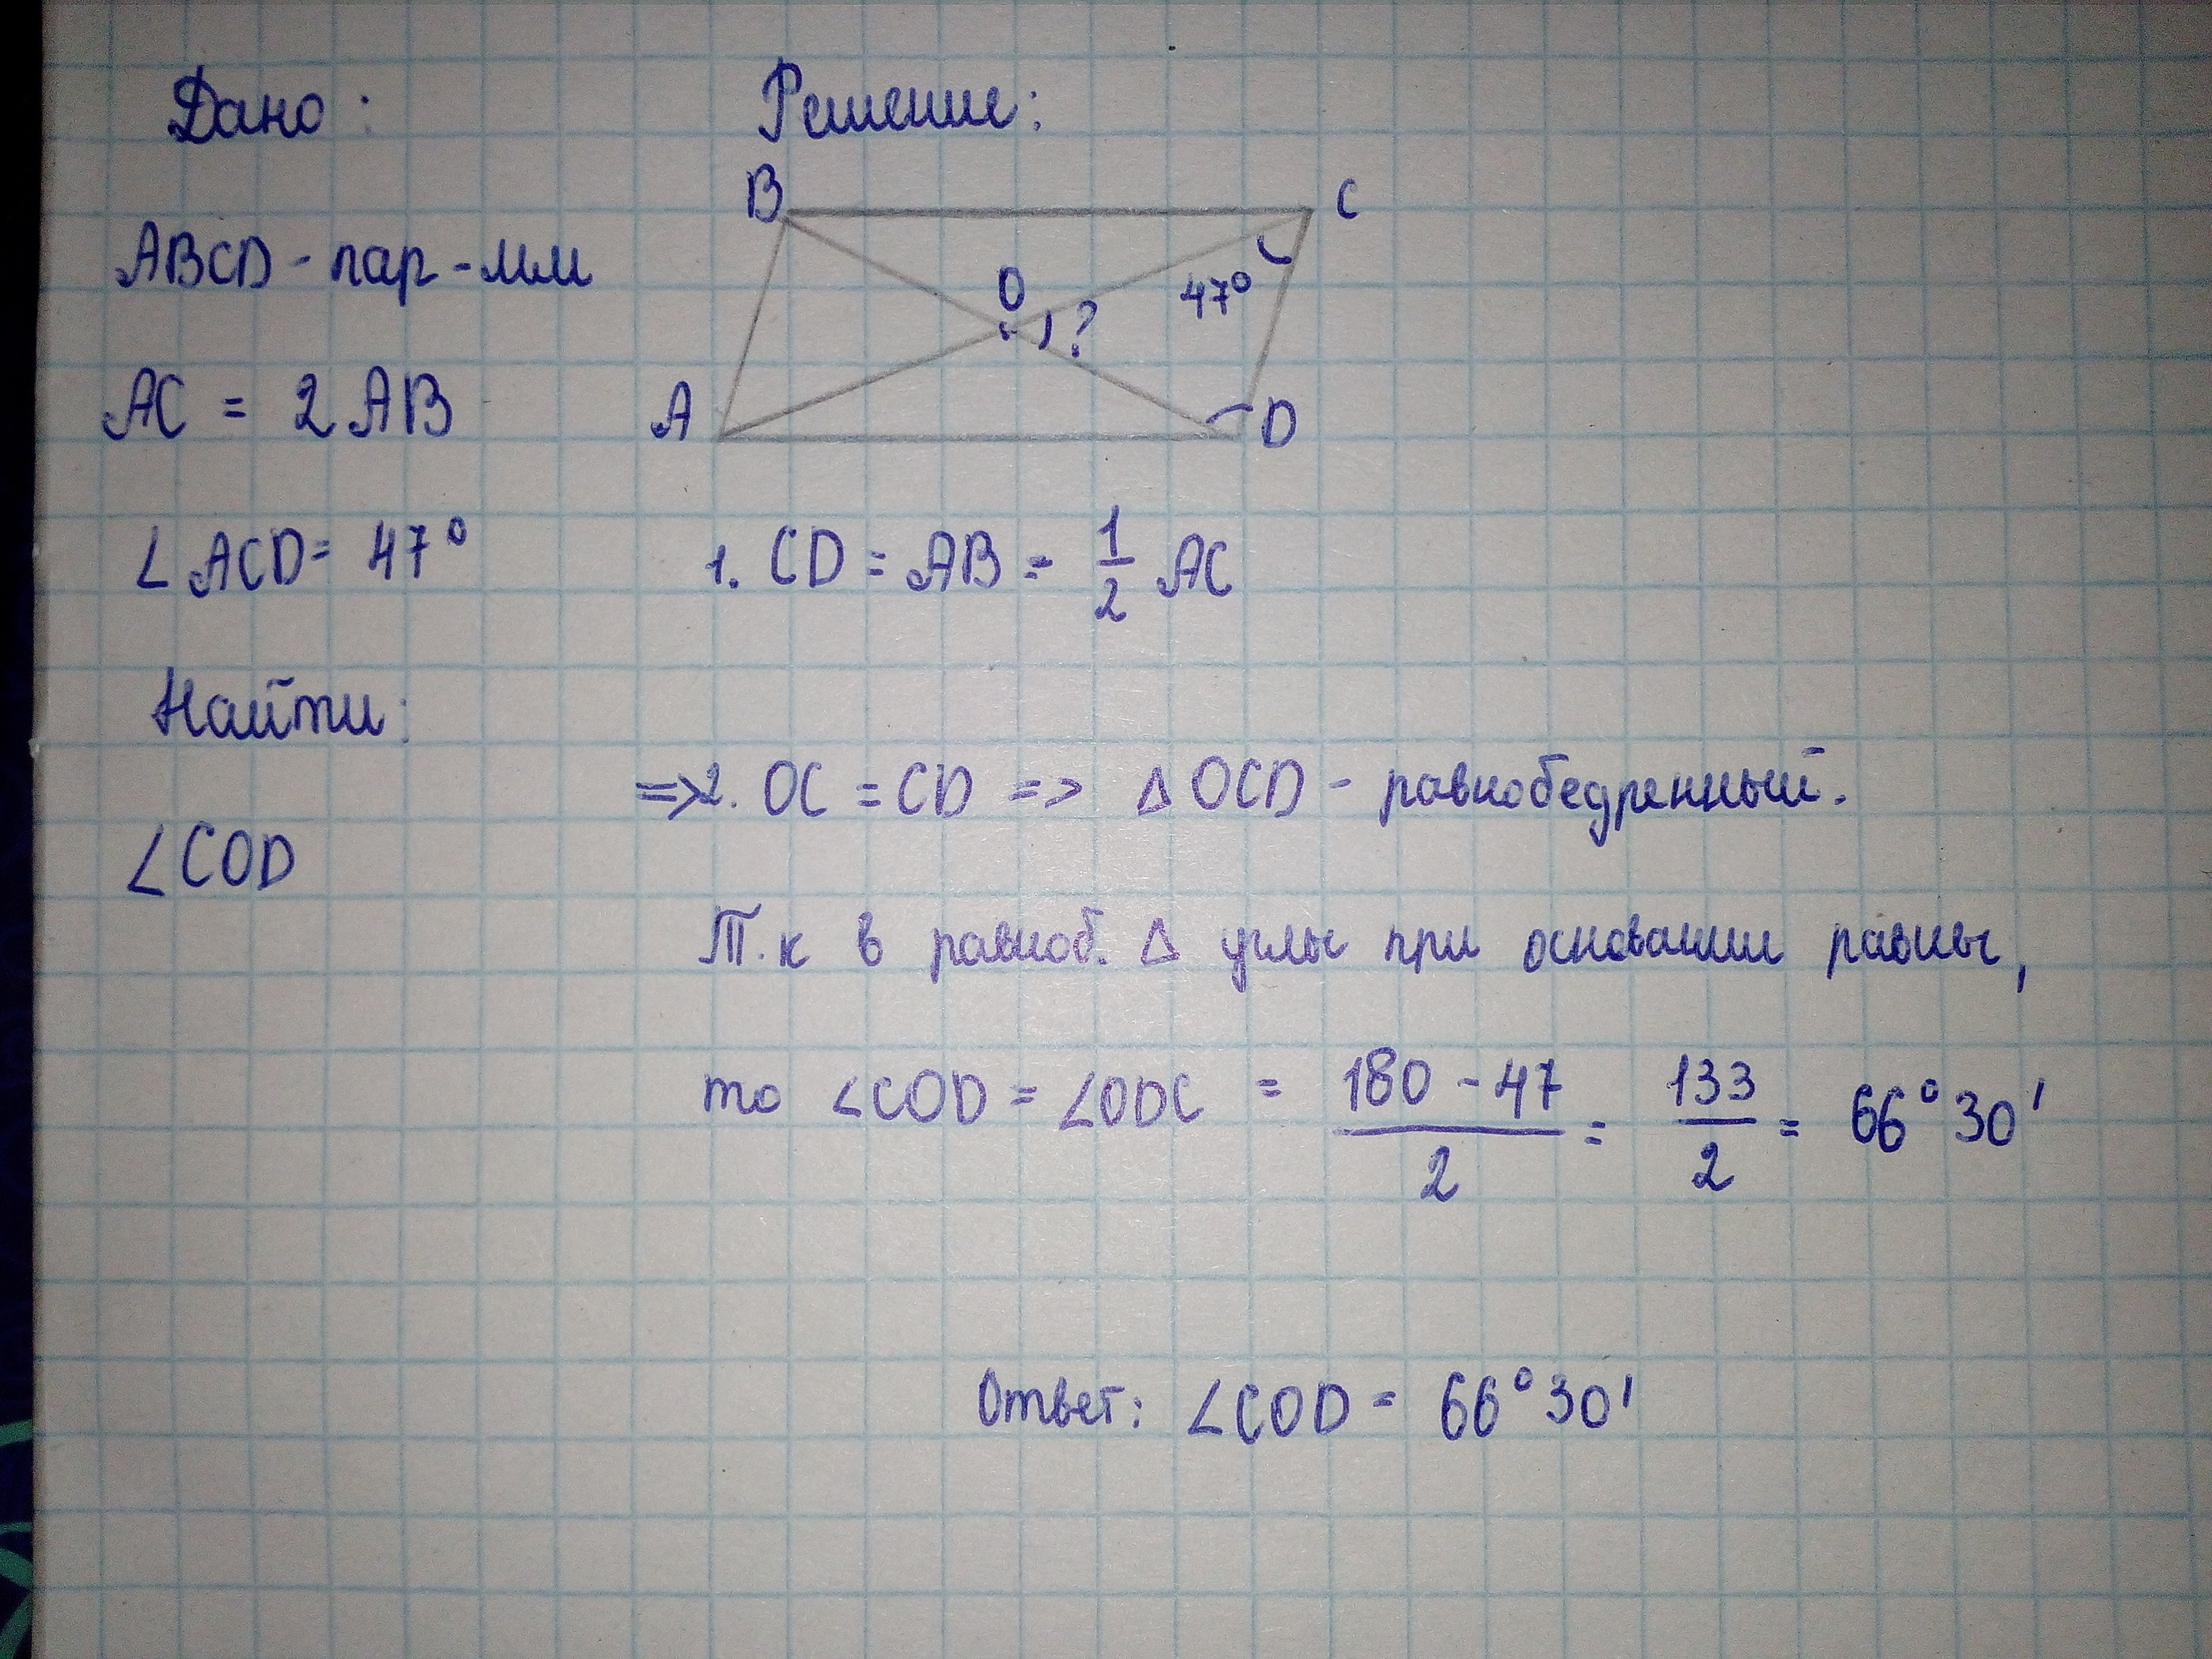 Дано:
ABCD - пар-мм
AC = 2 AB
∠ ACD = 47°
Найти:
∠COD
Решение:
B C
O
47°
?
A D
1. CD = AB = 1/2 AC
=> 2. OC = CD => Δ OCD - равнобедренный.
Т.к в равноб. Δ углы при основании равны,
то ∠COD = ∠ODC = 180 - 47 / 2 = 133 / 2 = 66° 30'
Ответ: ∠COD = 66° 30'